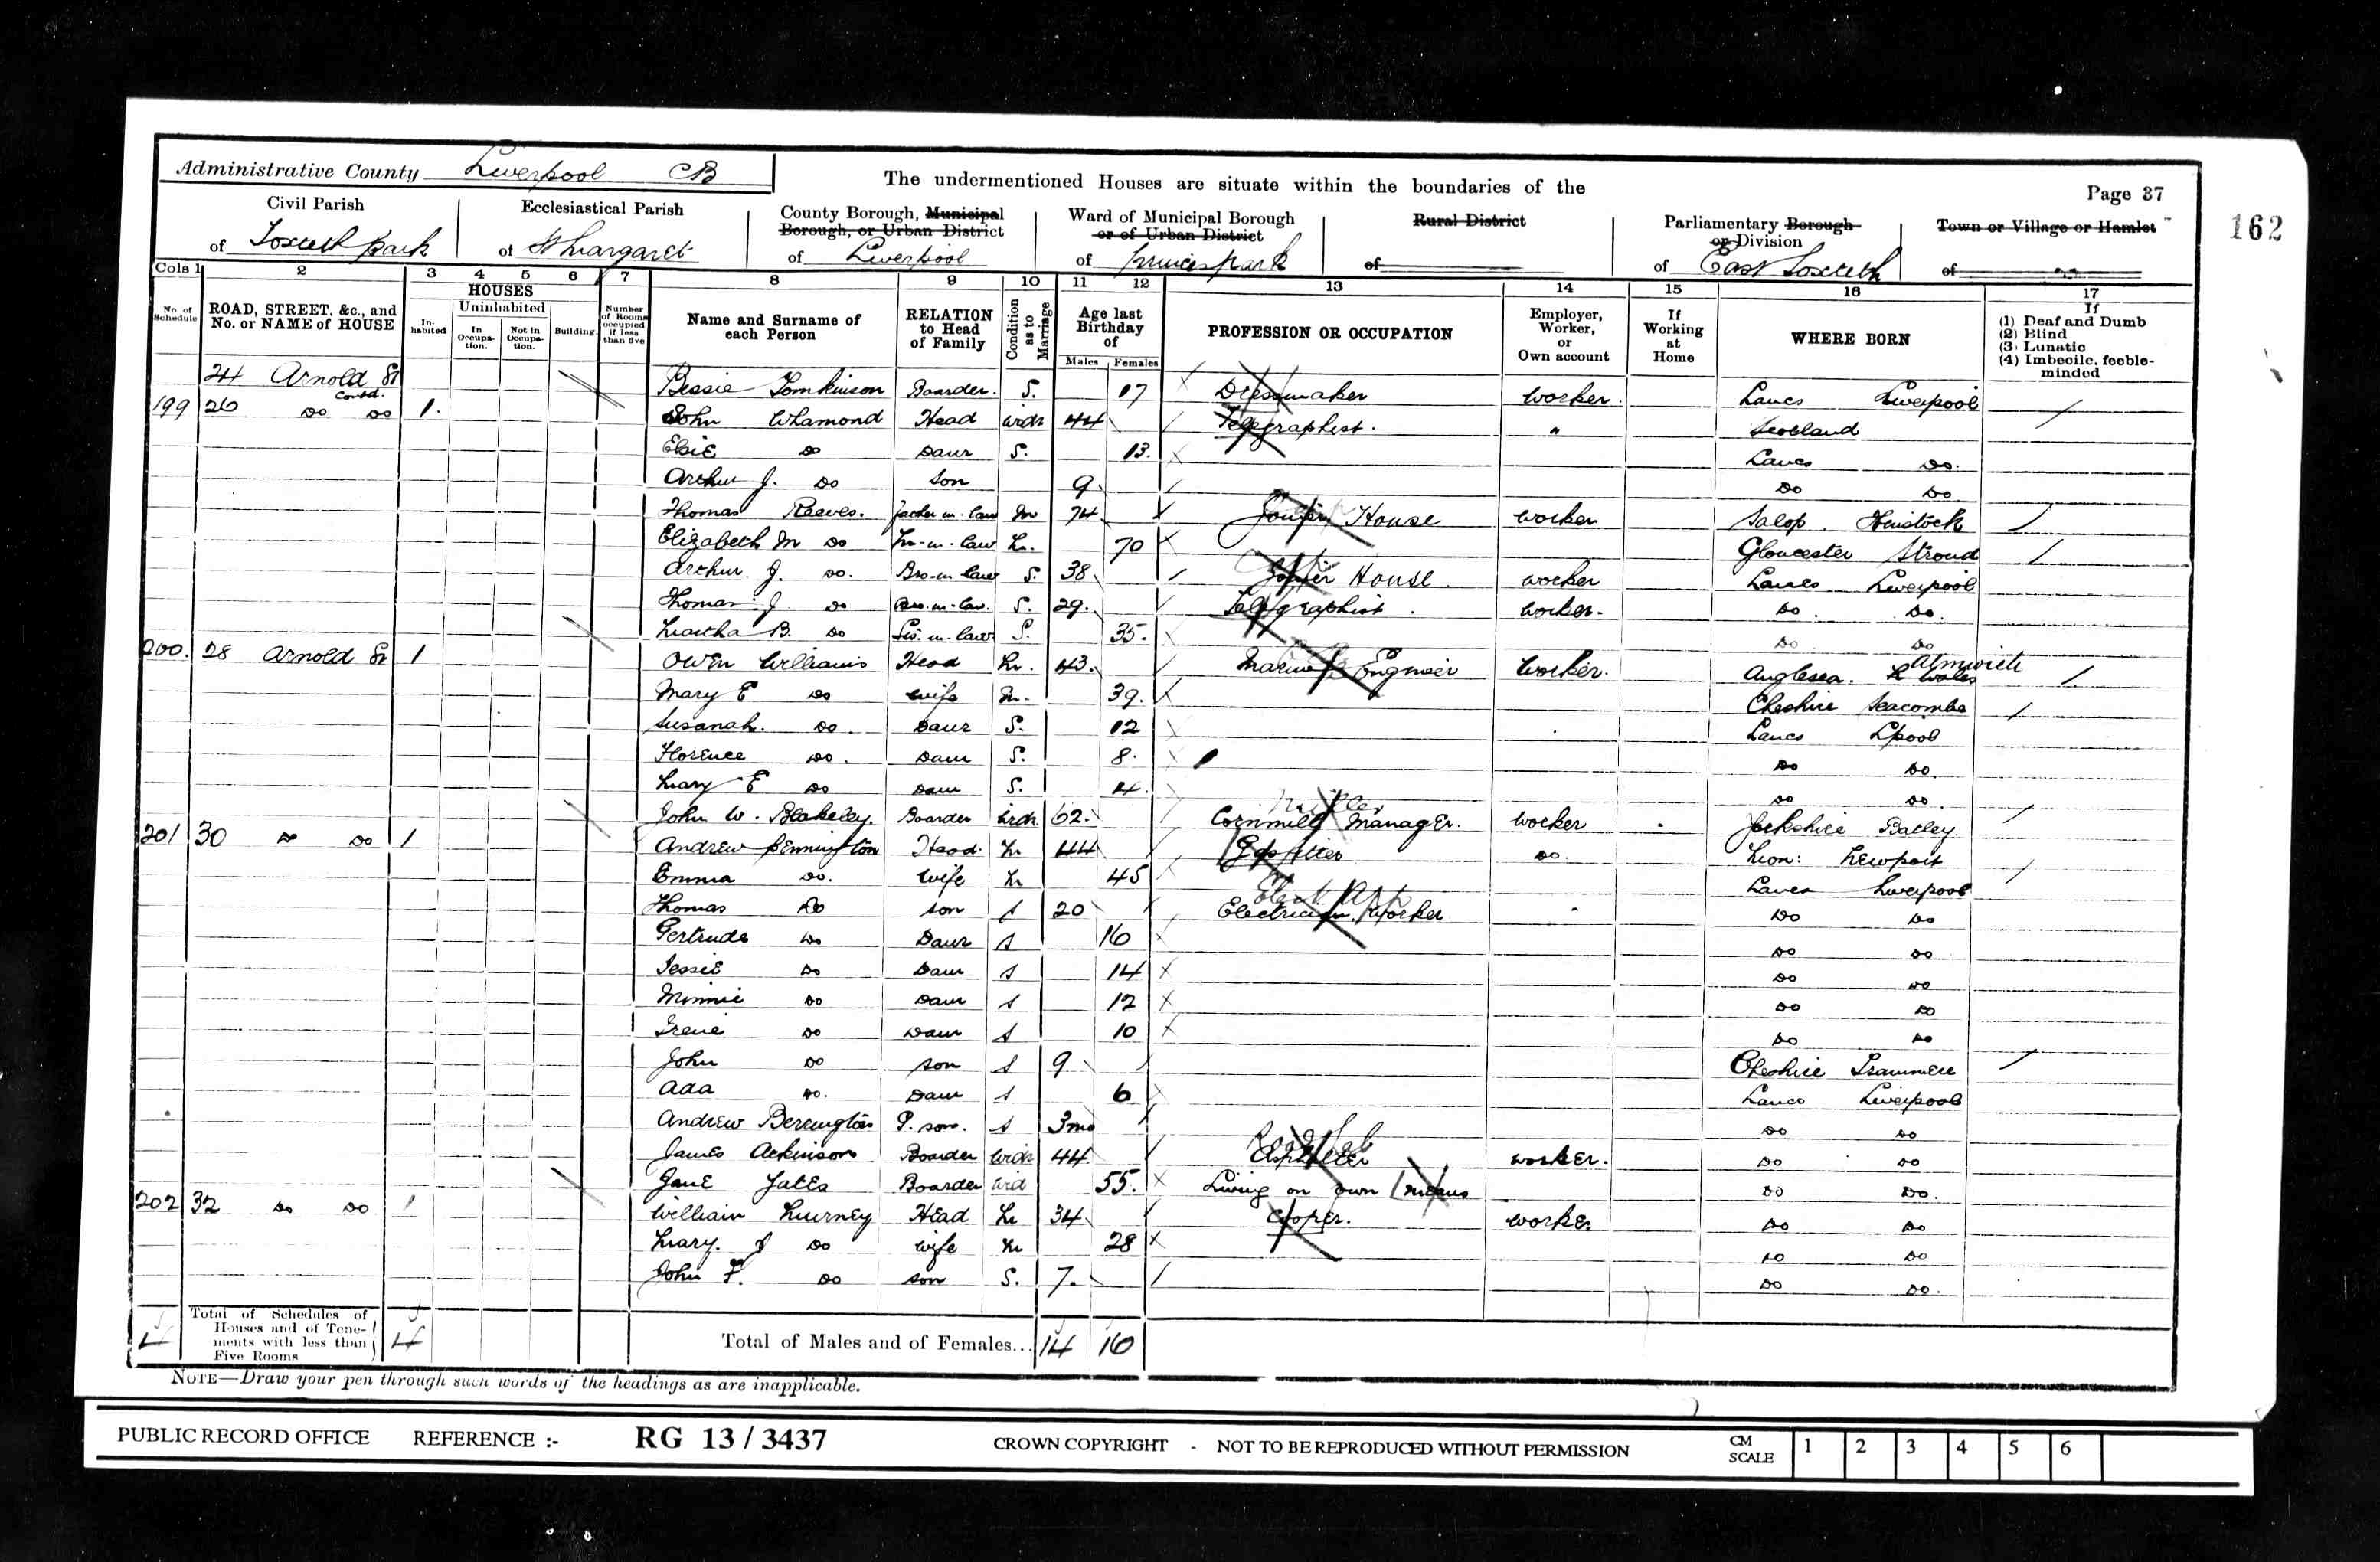 Administrative County Liverpool CB
The undermentioned Houses are situate within the boundaries of the
Page 37
162
Civil Parish of Toxteth Park
Ecclesiastical Parish of St Margaret
County Borough, Municipal Borough, or Urban District of Liverpool
Ward of Municipal Borough or of Urban District of Princes Park
Rural District of
Parliamentary Borough or Division of East Toxteth
Town or Village or Hamlet of
Cols 1 2 3 4 5 6 7 8 9 10 11 12 13 14 15 16 17
No. of Schedule
ROAD, STREET, &c., and No. or NAME of HOUSE
HOUSES
Inhabited
Uninhabited
In Occupation.
Not in Occupation.
Building.
Number of Rooms occupied if less than five
Name and Surname of each Person
RELATION to Head of Family
Condition as to Marriage
Age last Birthday of
Males Females
PROFESSION OR OCCUPATION
Employer, Worker, or Own account
If Working at Home
WHERE BORN
If
(1) Deaf and Dumb
(2) Blind
(3) Lunatic
(4) Imbecile, feeble-minded
24 Arnold St Contd. Bessie Tomkinson Boarder. S. 17 Dressmaker Worker. Lancs Liverpool
199 26 Do Do 1. John Whamond Head Widr 44 Telegraphist. " Scotland
Elsie Do Daur S. 13. Lancs Do.
Arthur J. Do Son 9 Do Do
Thomas Reeves. Father in law M 74 House Worker Salop.
Elizabeth M Do M-in-law M. 70 Gloucester Stroud
Arthur J. Do. Bro-in law S. 38 House. Worker Lancs Liverpool
Thomas J Do Bro-in-law. S. 29. Telegraphist. Worker. Do. Do.
Martha B. Do Sis-in-law S. 35. Do. Do
200. 28 Arnold St 1 Owen Williams Head M. 43. Marine Engineer Worker. Anglesea. N Wales Almwich
Mary E Do Wife M. 39. Cheshire Seacombe
Susanah. Do. Daur S. 12 Lancs L'pool
Florence Do. Daur S. 8. Do Do.
Mary E Do Daur S. 4. Do Do.
John W. Blakeley. Boarder Widr 62. Miller Cornmill Manager. Worker Yorkshire Batley.
201 30 Do Do 1 Andrew Pennington Head. M 44 Gasfitter Do. Mon: Newport
Emma Do. Wife M 45 Lancs Liverpool
Thomas Do Son S 20 Electrician Worker " Do Do
Gertrude Do Daur S 16 Do Do
Jessie Do Daur S 14 Do Do
Minnie Do Daur S 12 Do Do
Irene Do Daur S 10 Do Do
John Do Son S 9 Cheshire Tranmere
Ada Do. Daur S 6 Lancs Liverpool
Andrew G. son. S 3mo Do Do
James Atkinson Boarder Widr 44 Worker. Do Do
Jane Yates Boarder Wid 55. Living on own means Do Do.
202 32 Do Do 1 William Head M 34 Cooper. Worker Do Do
Mary. J Do Wife M 28 Do Do
John F. Do Son S. 7. Do Do.
4 Total of Schedules of Houses and of Tenements with less than Five Rooms 4
Total of Males and of Females... 14 16
NOTE—Draw your pen through such words of the headings as are inapplicable.
PUBLIC RECORD OFFICE REFERENCE :- RG 13 / 3437 CROWN COPYRIGHT - NOT TO BE REPRODUCED WITHOUT PERMISSION CM SCALE 1 2 3 4 5 6